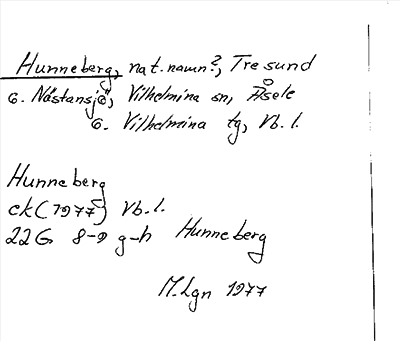 Hunneberg, nat.namn?, Tresund
o. Nästansjö, Vilhelmina sn, Åsele
o. Vilhelmina tg, Vb.l.
Hunneberg
ek (1977) Vb.l.
22G 8-9 g-h Hunneberg
M.Lgn 1977